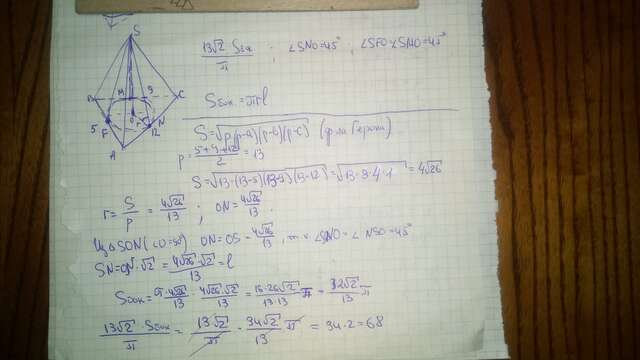 S
13√2/π Sбок ; ∠SNO=45° ; ∠SFO=∠SMO=45°
B M 9 C
Sбок=πrl
5 F O r N 12
A
S=√p(p-a)(p-b)(p-c) (ф-ла Герона)
p=(5+9+12)/2=13
S=√13·(13-5)(13-9)(13-12)=√13·8·4·1=4√26
r=S/p=4√26/13 ; ON=4√26/13.
Из ΔSON(∠O=90°) ON=OS=4√26/13, т.к ∠SNO=∠NSO=45°
SN=ON·√2=4√26/13·√2=l
Sбок=π·4√26/13·4√26·√2/13=16·26√2/13·13 π=32√2/13 π
13√2/π·Sбок=13√2/π·34√2/13 π=34·2=68